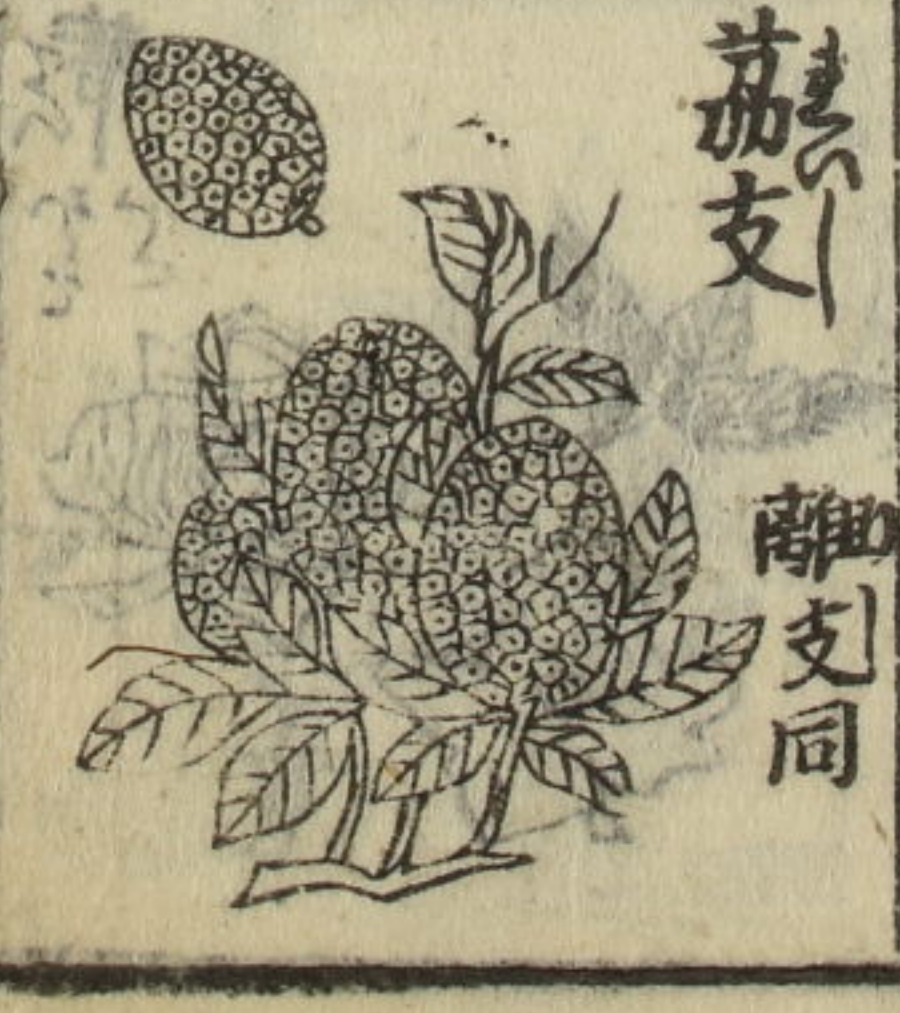 荔支
れいし
離支同
りし